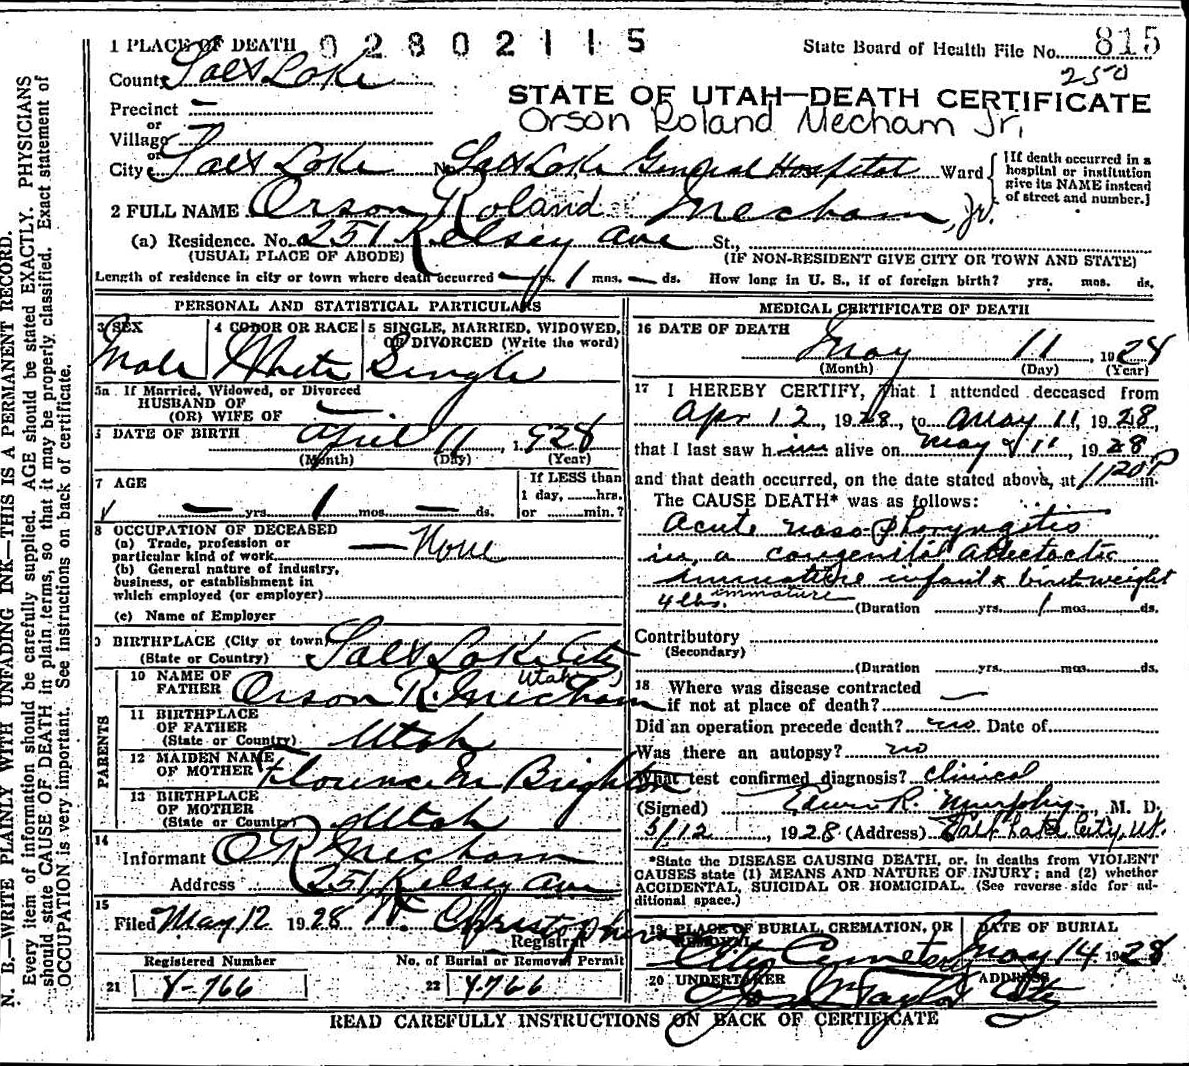 1 PLACE OF DEATH 02802115 State Board of Health File No. 815
County Salt Lake 250
Precinct —
STATE OF UTAH—DEATH CERTIFICATE
or
Village
Orson Roland Mecham Jr.
or
City Salt Lake No. Salt Lake General Hospital Ward
[If death occurred in a hospital or institution give its NAME instead of street and number.]
2 FULL NAME Orson Roland Mecham, Jr.
(a) Residence. No. 251 Kelsey Ave St.,
(USUAL PLACE OF ABODE) (IF NON-RESIDENT GIVE CITY OR TOWN AND STATE)
Length of residence in city or town where death occurred — yrs. 1 mos. — ds. How long in U. S., if of foreign birth? yrs. mos. ds.
PERSONAL AND STATISTICAL PARTICULARS
3 SEX 4 COLOR OR RACE 5 SINGLE, MARRIED, WIDOWED,
OR DIVORCED (Write the word)
Male White Single
5a If Married, Widowed, or Divorced
HUSBAND OF
(OR) WIFE OF —
6 DATE OF BIRTH April 11, 1928
(Month) (Day) (Year)
7 AGE If LESS than
1 day, ......hrs.
— yrs. 1 mos. — ds. or ......min.?
8 OCCUPATION OF DECEASED
(a) Trade, profession or
particular kind of work — None
(b) General nature of industry,
business, or establishment in
which employed (or employer)
(c) Name of Employer
9 BIRTHPLACE (City or town) Salt Lake City
(State or Country) Utah
PARENTS
10 NAME OF
FATHER Orson R. Mecham
11 BIRTHPLACE
OF FATHER
(State or Country) Utah
12 MAIDEN NAME
OF MOTHER Florence M Brighton
13 BIRTHPLACE
OF MOTHER
(State or Country) Utah
14
Informant O R Mecham
Address 251 Kelsey Ave
15
Filed May 12 1928 W. Christopherson
Registrar
Registered Number No. of Burial or Removal Permit
21 Y-766 22 Y766
MEDICAL CERTIFICATE OF DEATH
16 DATE OF DEATH
May 11, 1928
(Month) (Day) (Year)
17 I HEREBY CERTIFY, That I attended deceased from
Apr 12, 1928, to May 11, 1928,
that I last saw him alive on May 11, 1928
and that death occurred, on the date stated above, at 1120P m.
The CAUSE DEATH* was as follows:
Acute naso pharyngitis
in a congenital atelectatic
immature infant birthweight
4 lbs. immature (Duration yrs. 1 mos. ds.
Contributory
(Secondary)
(Duration yrs. mos. ds.
18 Where was disease contracted
if not at place of death? —
Did an operation precede death? no Date of
Was there an autopsy? no
What test confirmed diagnosis? clinical
(Signed) Edwin R. Murphy, M. D.
5/12, 1928 (Address) Salt Lake City, Ut.
*State the DISEASE CAUSING DEATH, or, in deaths from VIOLENT
CAUSES state (1) MEANS AND NATURE OF INJURY; and (2) whether
ACCIDENTAL, SUICIDAL OR HOMICIDAL. (See reverse side for ad-
ditional space.)
19 PLACE OF BURIAL, CREMATION, OR REMOVAL DATE OF BURIAL
City Cemetery May 14 1928
20 UNDERTAKER ADDRESS
Jos Wm Taylor City
READ CAREFULLY INSTRUCTIONS ON BACK OF CERTIFICATE
N. B.—WRITE PLAINLY WITH UNFADING INK—THIS IS A PERMANENT RECORD.
Every item of information should be carefully supplied. AGE should be stated EXACTLY. PHYSICIANS
should state CAUSE OF DEATH in plain terms, so that it may be properly classified. Exact statement of
OCCUPATION is very important. See instructions on back of certificate.